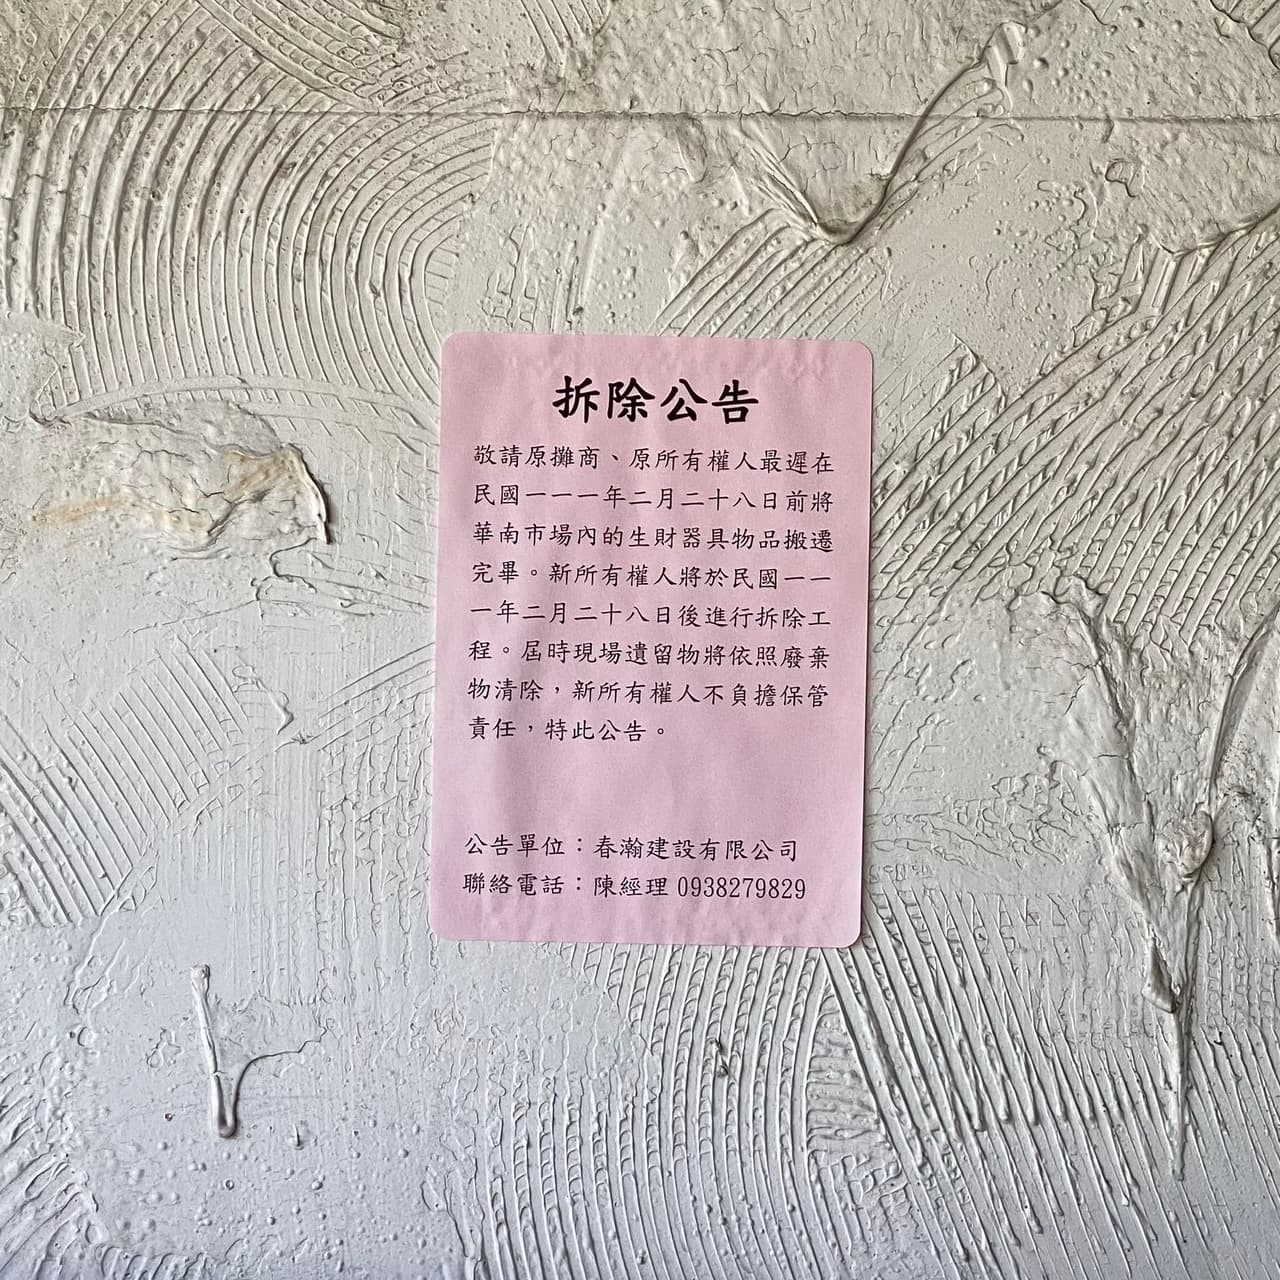 拆除公告
敬請原攤商、原所有權人最遲在
民國一一一年二月二十八日前將
華南市場內的生財器具物品搬遷
完畢。新所有權人將於民國一一
一年二月二十八日後進行拆除工
程。屆時現場遺留物將依照廢棄
物清除，新所有權人不負擔保管
責任，特此公告。
公告單位：春瀚建設有限公司
聯絡電話：陳經理 0938279829